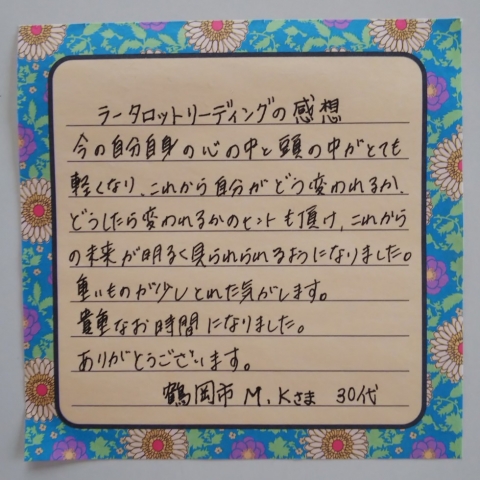 ラータロットリーディングの感想
今の自分自身の心の中と頭の中がとても
軽くなり、これから自分がどう変われるか、
どうしたら変われるかのヒントも頂け、これから
の未来が明るく見られられるようになりました。
重いものが少しとれた気がします。
貴重なお時間になりました。
ありがとうございます。
鶴岡市 M.Kさま 30代